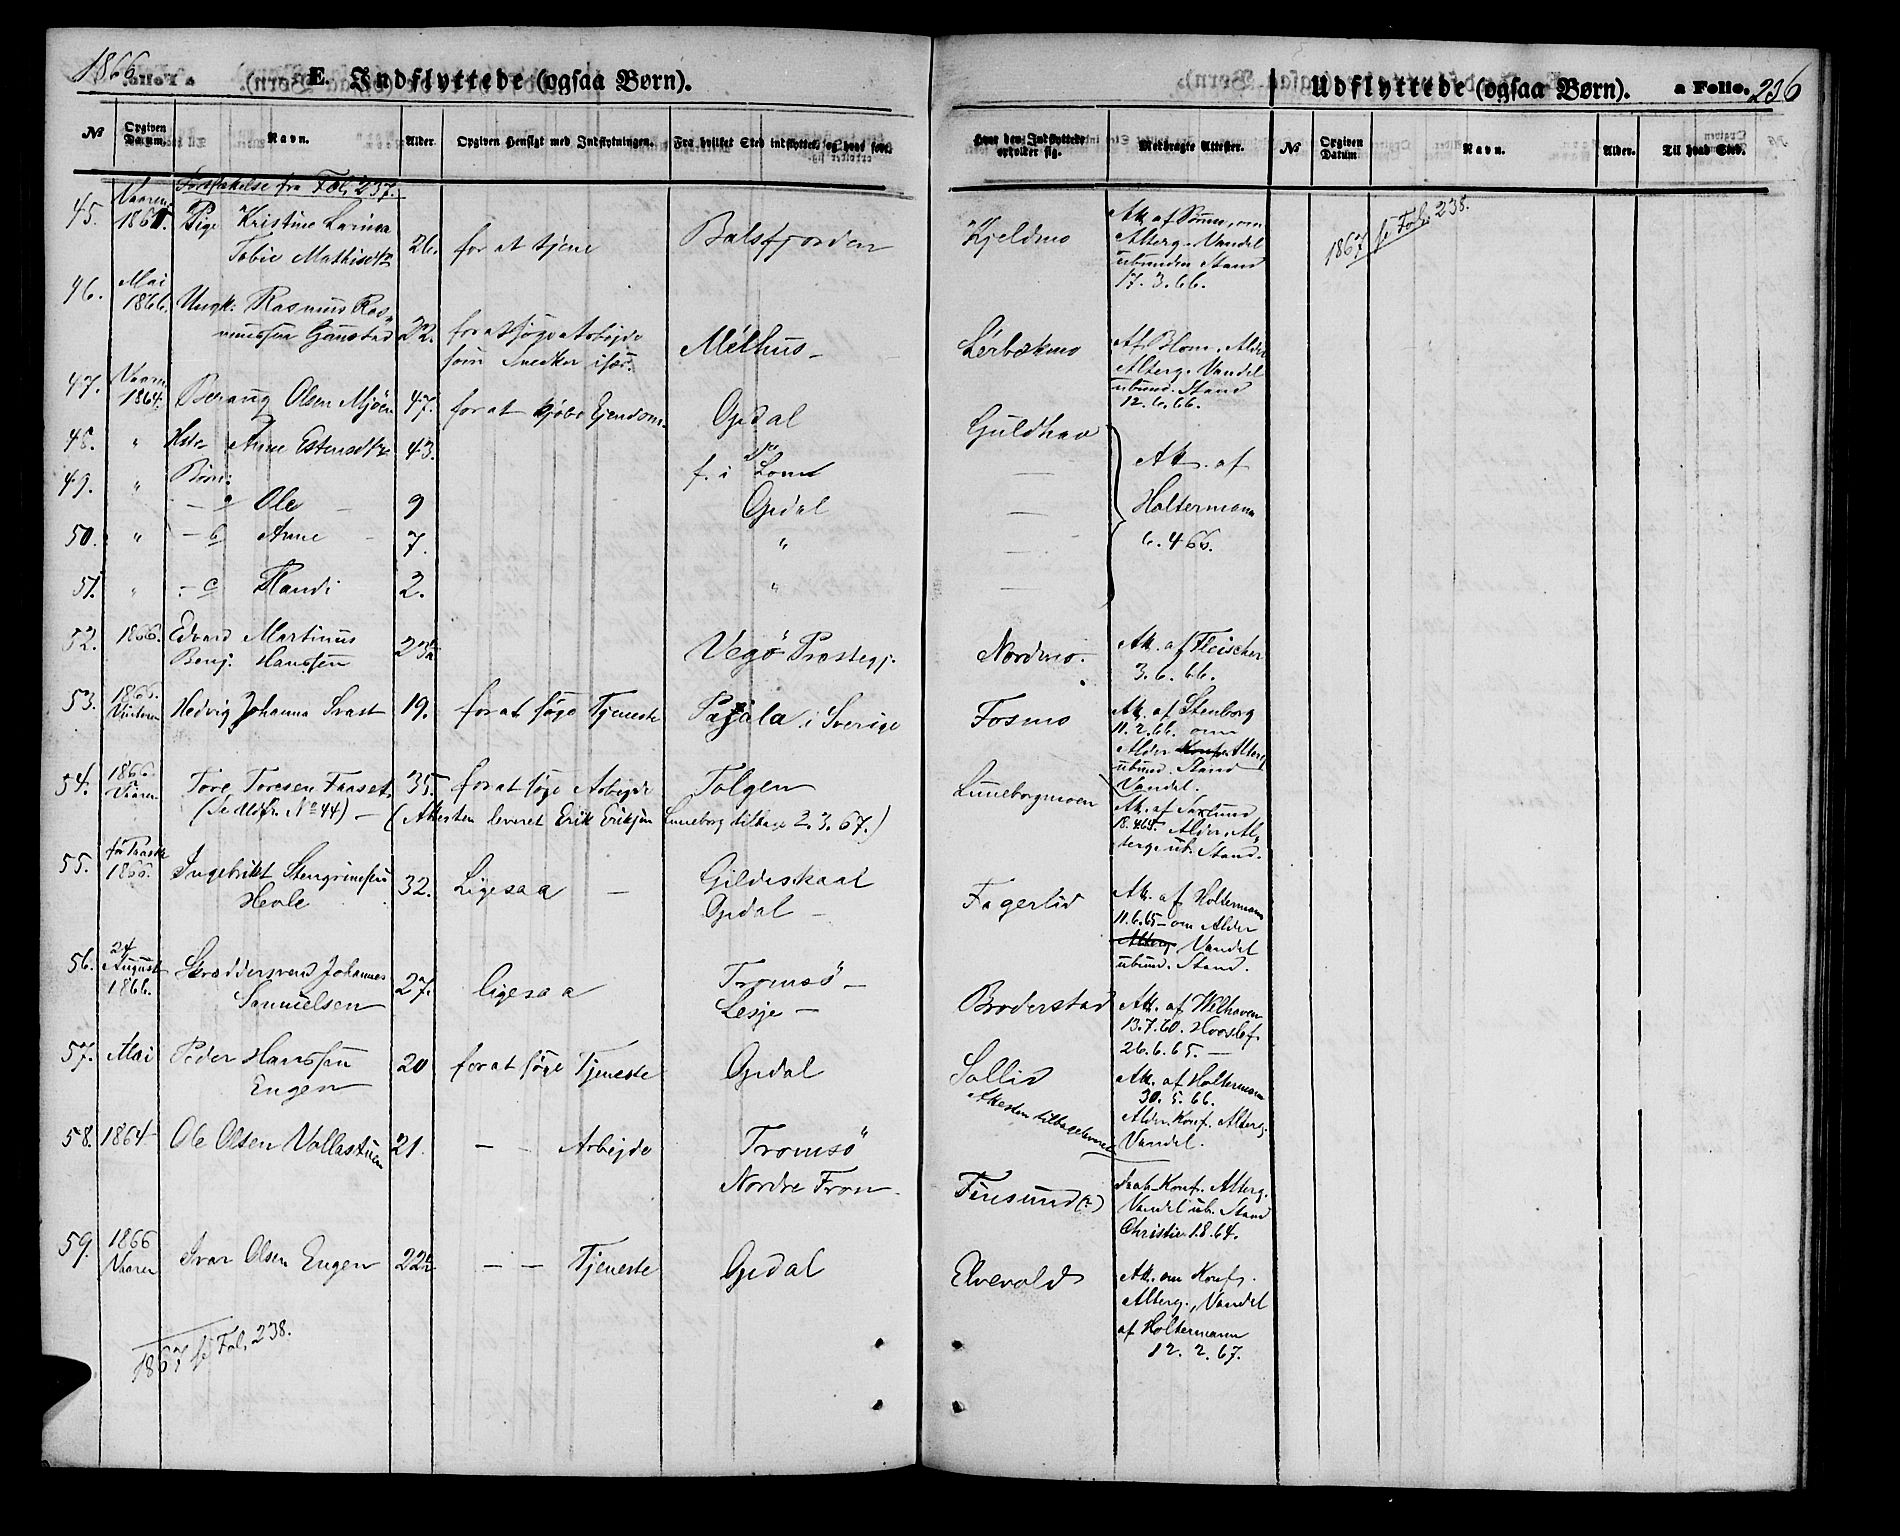 1866
E. Indflyttede (ogsaa Børn).
Udflyttede (ogsaa Børn). a Folio. 236
No Opgiven Datum. Navn. Alder. Opgiven Hensigt med Indflytningen. Fra hvilket Sted indflyttet, og hvad før.
Hvor den Indflyttede opholder sig. Medbragte Attester. No Opgiven Datum Navn. Alder. Til hvad Sted.
Fortsættelse fra Fol. 237.
45. Vaaren 1865. Pige Kristine
Tobie Mathisdtr 26. for at tjene Balsfjorden Kjeldmo
Att. af Sømme, om
Alterg. Vandel
ubunden Stand
17. 3. 66.
1867 se Fol. 238.
46. Mai 1866. Ungk. Rasmus Ras-
mussen Gamstad 22. for at søge Arbejde
som Snedker især. Melhus - Lerbækmo
Att. Blom, Alder
Alterg. Vandel
ubund. Stand
12. 6. 66.
47. Vaaren 1864. Beraug Olsen Mjøen 47. for at kjøbe Ejendom Opdal Guldhav
48. " Hstr Anne Estensdtr 43. f. i Lom —
Att. af
Holtermann
6. 4 66.
49. " Børn:
— a Ole — 9 Opdal —
50. " — b Anne - 7. " —
51. " - c Randi 2. " —
52. 1866. Edvard Martinus
Benj. Hanssen 23½ Vegø Præstegj. Nordmo.
Att. af Fleischer
3. 6. 66.
53. 1866. Vinteren Hedvig Johanna Svast 19. for at søge Tjeneste Pajala i Sverige Fosmo
Att. af Stenborg
11. 2. 66. om
Alder Konf. Alterg
ubund. Stand
Vandel.
54. 1866. Vaaren Tore Toresen Faaset. 35. for at søge Arbejde Tolgen Luneborgmoen
(Sedlsfr. No 44) — (Attesten leveret Erik Eriksen Luneborg tilbage 2. 3. 67.)
18. 4 64. Alder, Al-
terg. ub. Stand.
55. før Paaske 1866. Ingebrikt Stengrimsen
Hevle 32. Ligesaa — Gildeskaal
Opdal — Fagerlid
Att. af Holtermann
11. 6. 65 — om Alder
Alterg. Vandel
ubund. Stand.
56. 24 August 1866. Skræddersvend Johannes
Samuelsen 27. ligesaa Tromsø —
Lesje — Broderstad
Att. af Welhaven
13. 7. 60.
26. 6. 65. —
57. Mai Peder Hanssen
Engen 20 for at søge Tjeneste Opdal Sollid
Attesten tilbageleveret
Att. af Holtermann
30. 5. 66.
Alder Konf. Alterg.
Vandel.
58. 1864 Ole Olsen Vollastuen 21. — - Arbejde Tromsø
Nordre Fron. Finsund (?)
Daab Konf. Alterg.
Vandel ub. Stand
Christie 1. 8. 64.
59. 1866 Vaaren Ivar Olsen Engen 22½ — — Tjeneste Opdal Elvevold
Att. om Konf.
Alterg., Vandel
af Holtermann
12. 2. 67.
1867 se Fol. 238.